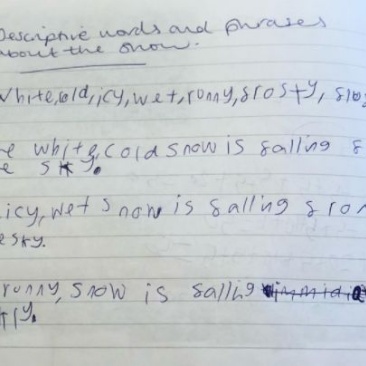 Descriptive words and phrases
about the snow.
White, cold, icy, wet, runny, frosty,
e white, cold snow is falling f
e sky.
icy, wet snow is falling fro
e sky.
runny, snow is falling
sky.